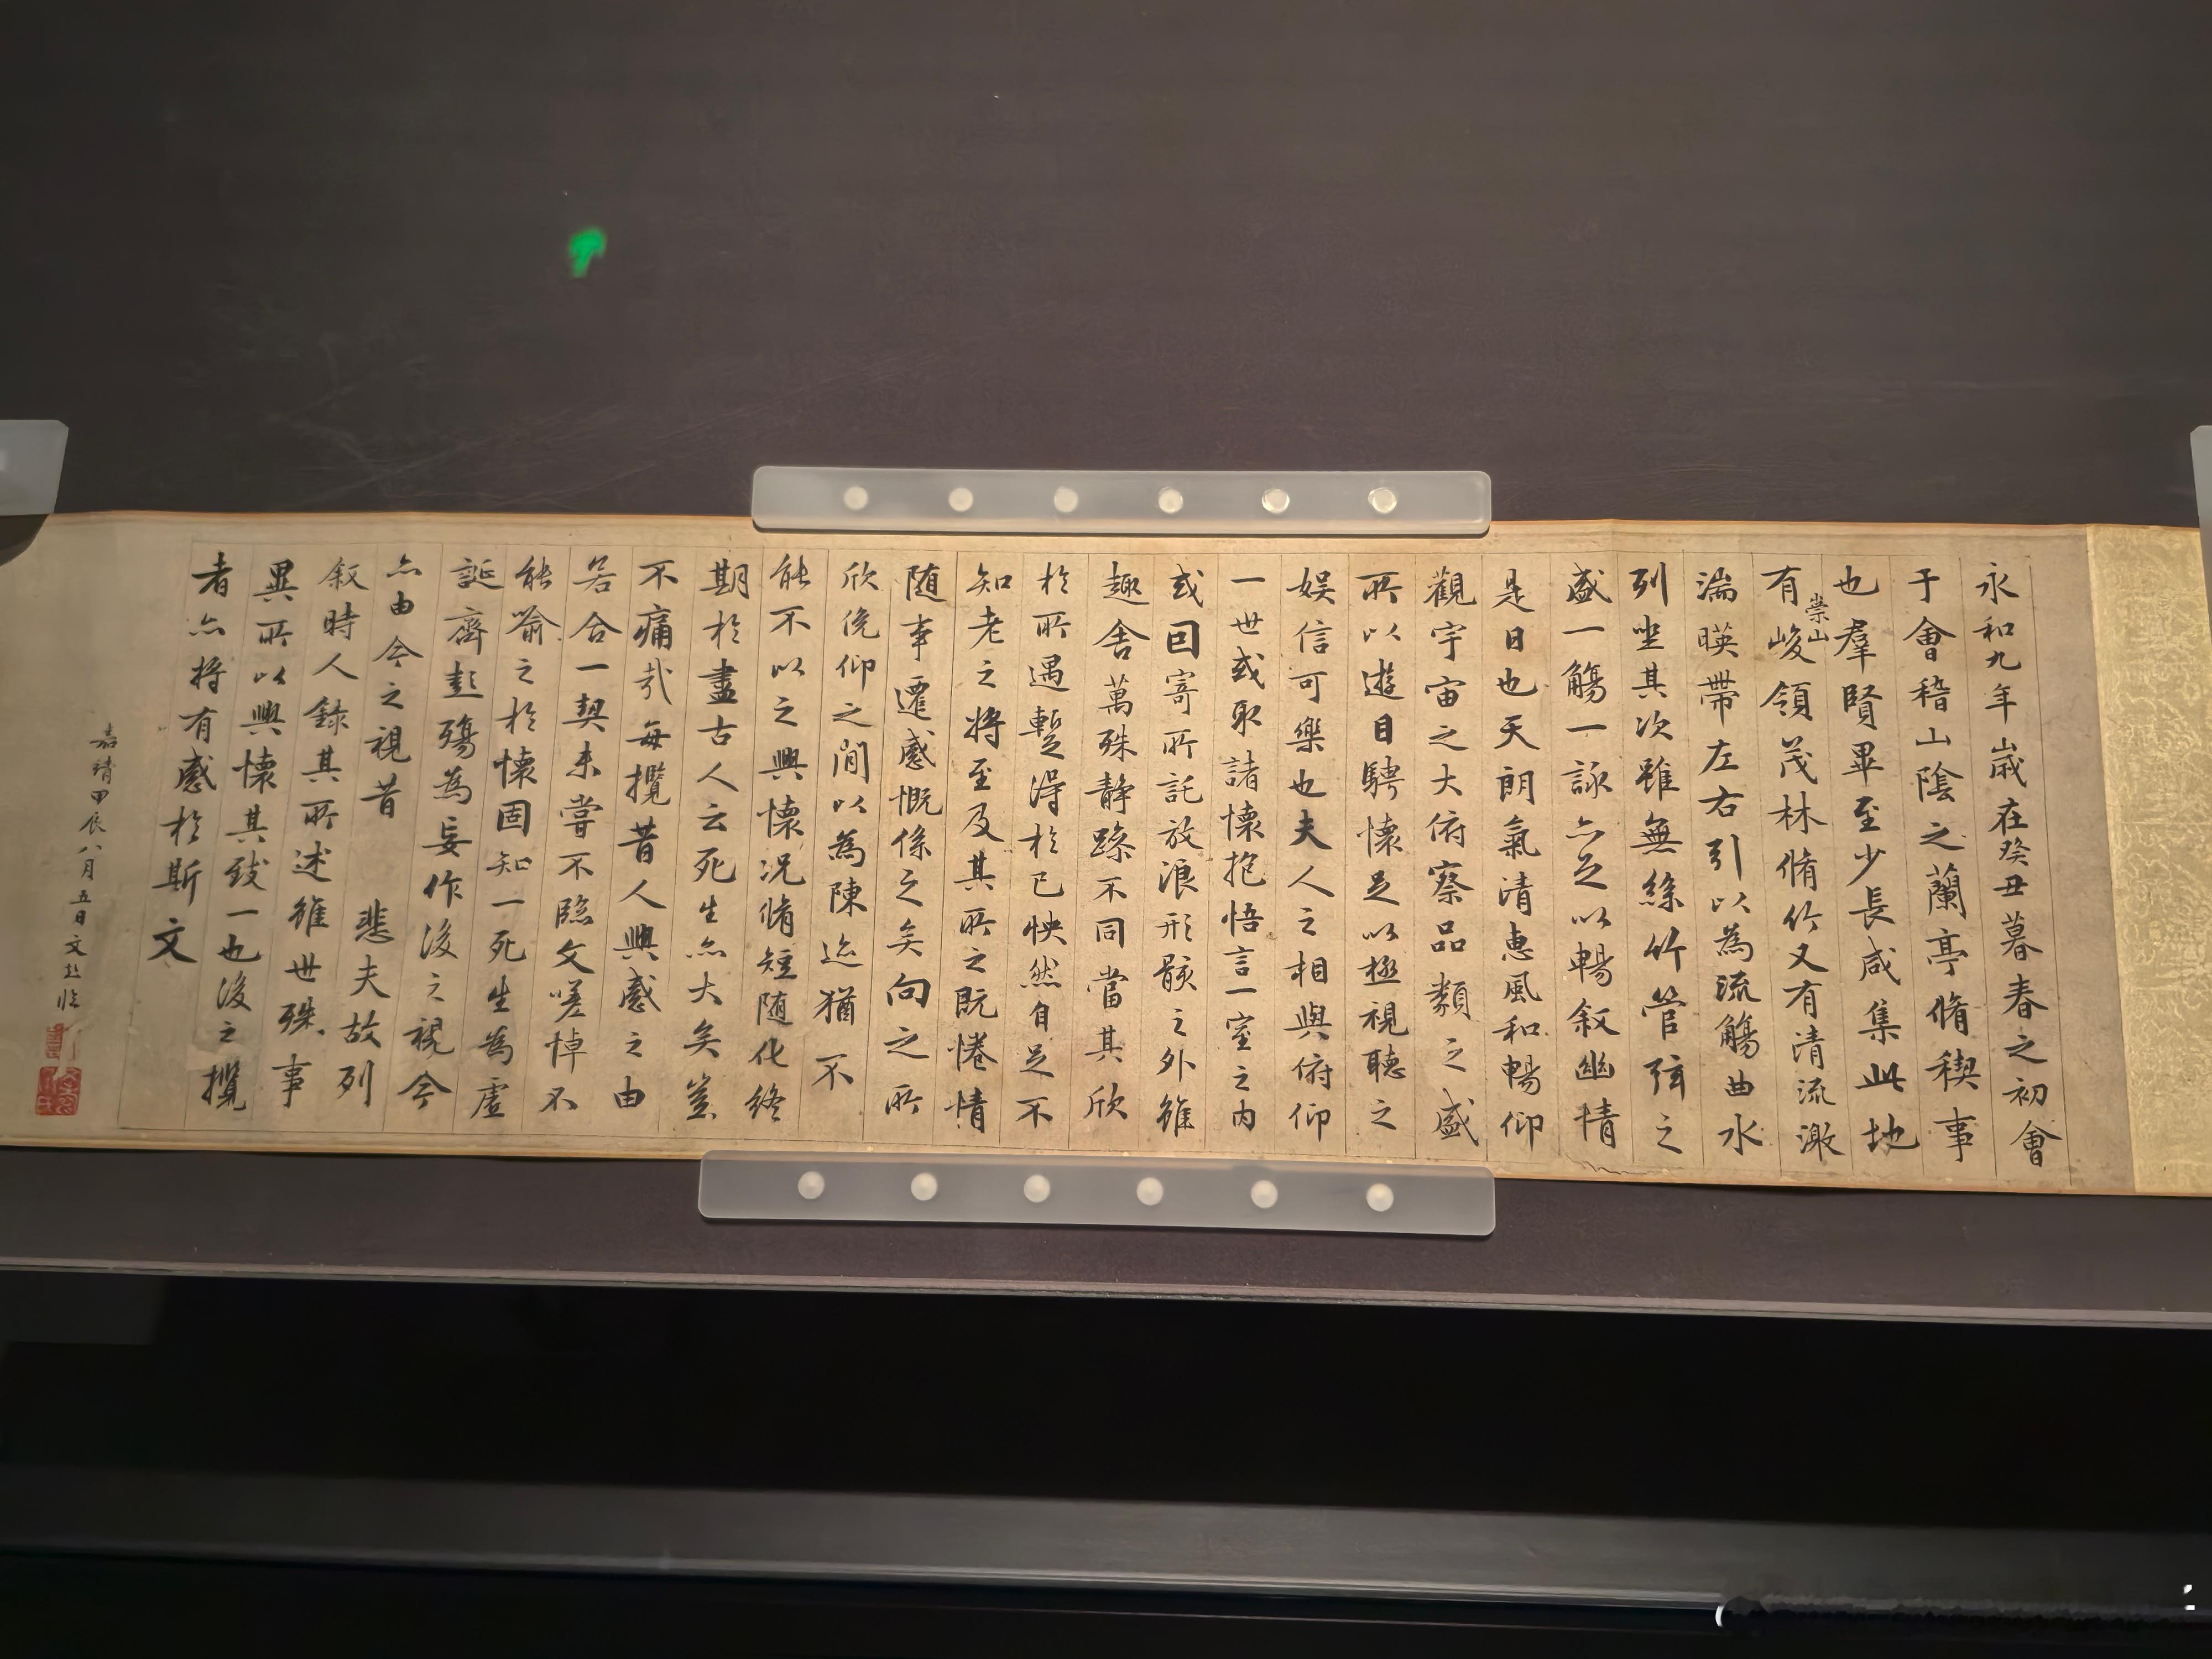 永和九年歲在癸丑暮春之初會
于會稽山陰之蘭亭脩稧事
也羣賢畢至少長咸集此地
有崇山峻領茂林脩竹又有清流激
湍暎帶左右引以為流觴曲水
列坐其次雖無絲竹管弦之
盛一觴一詠亦足以暢叙幽情
是日也天朗氣清惠風和暢仰
觀宇宙之大俯察品類之盛
所以遊目騁懷足以極視聽之
娛信可樂也夫人之相與俯仰
一世或取諸懷抱悟言一室之內
或因寄所託放浪形骸之外雖
趣舍萬殊靜躁不同當其欣
於所遇暫得於己怏然自足不
知老之將至及其所之既惓情
隨事遷感慨係之矣向之所
欣俛仰之閒以為陳迹猶不
能不以之興懷況脩短隨化終
期於盡古人云死生亦大矣豈
不痛哉每攬昔人興感之由
若合一契未嘗不臨文嗟悼不
能喻之於懷固知一死生為虛
誕齊彭殤為妄作後之視今
亦由今之視昔悲夫故列
叙時人錄其所述雖世殊事
異所以興懷其致一也後之攬
者亦將有感於斯文
嘉靖甲辰八月五日文彭臨